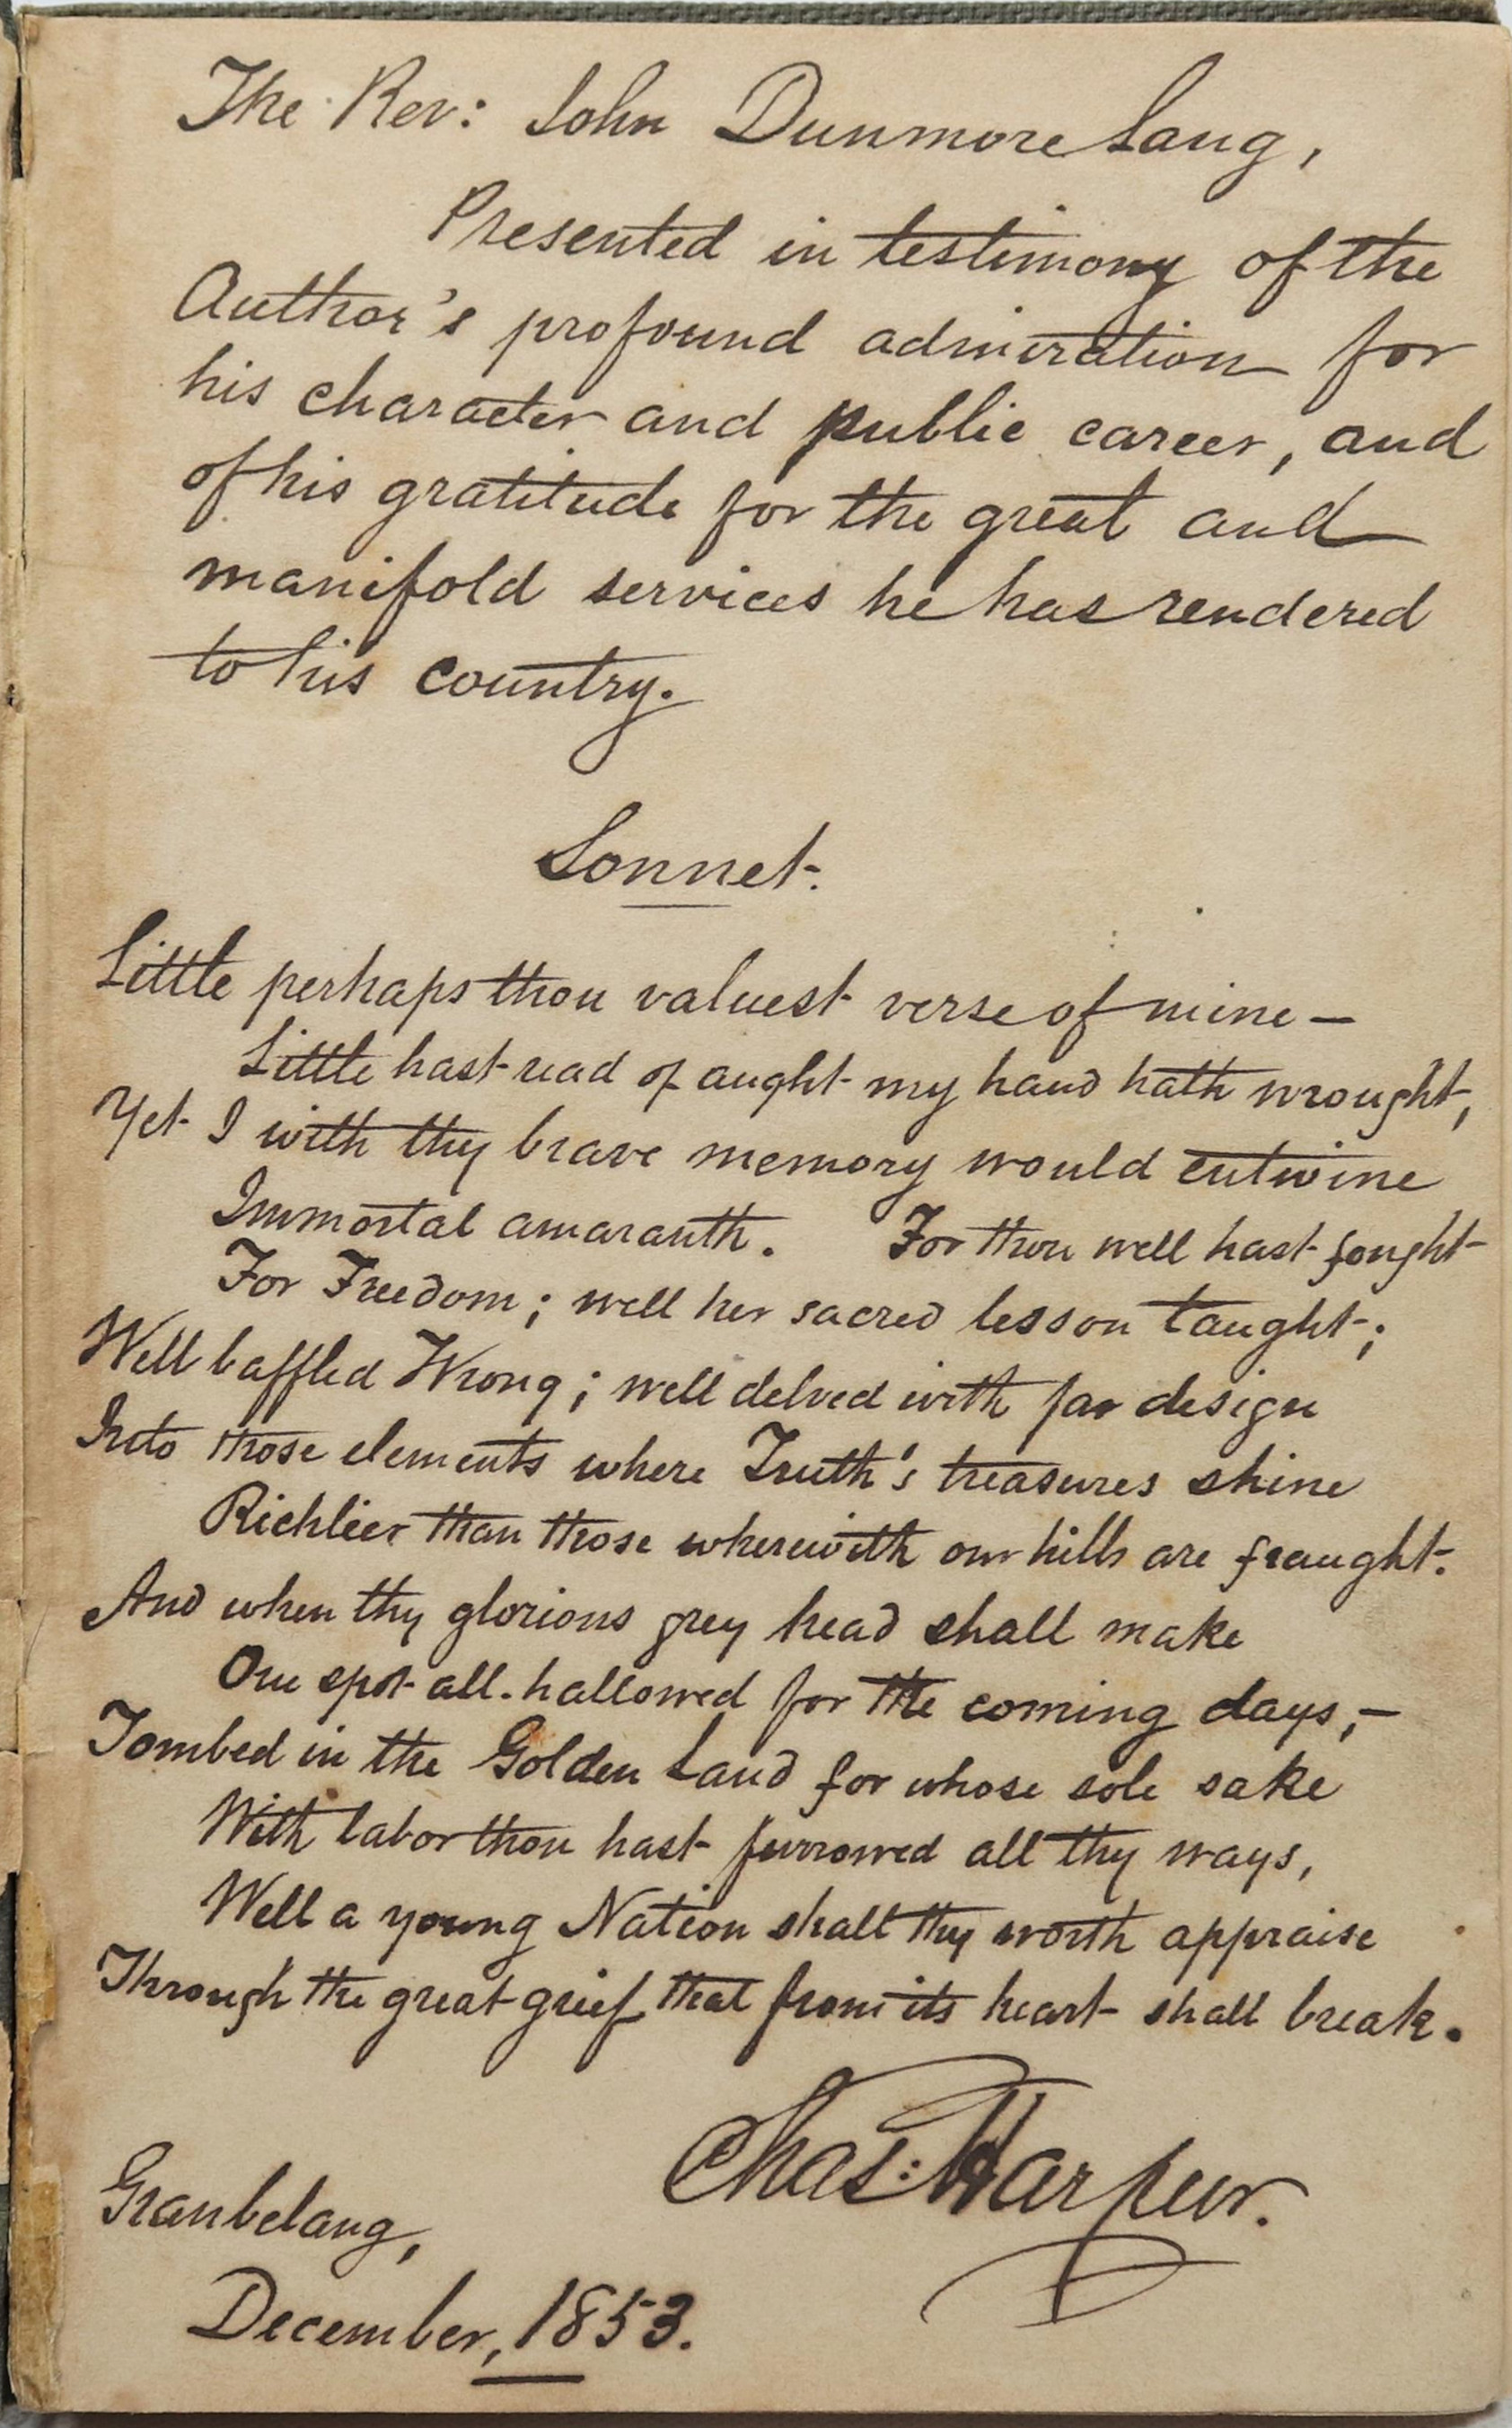 The Rev: John Dunmore Lang,
Presented in testimony of the
Author's profound admiration for
his character and public career, and
of his gratitude for the great and
manifold services he has rendered
to his country.
Sonnet.
Little perhaps thou valuest verse of mine —
Little hast read of aught my hand hath wrought,
Yet I with thy brave memory would entwine
Immortal amaranth. For thou well hast fought
For Freedom; well her sacred lesson taught;
Well baffled Wrong; well delved with far design
Into those elements where Truth's treasures shine
Richlier than those wherewith our hills are fraught.
And when thy glorious grey head shall make
One spot all-hallowed for the coming days, —
Tombed in the Golden Land for whose sole sake
With labor thou hast furrowed all thy ways,
Well a young Nation shall thy worth appraise
Through the great grief that from its heart shall break.
Chas: Harpur.
Granbelang,
December, 1853.